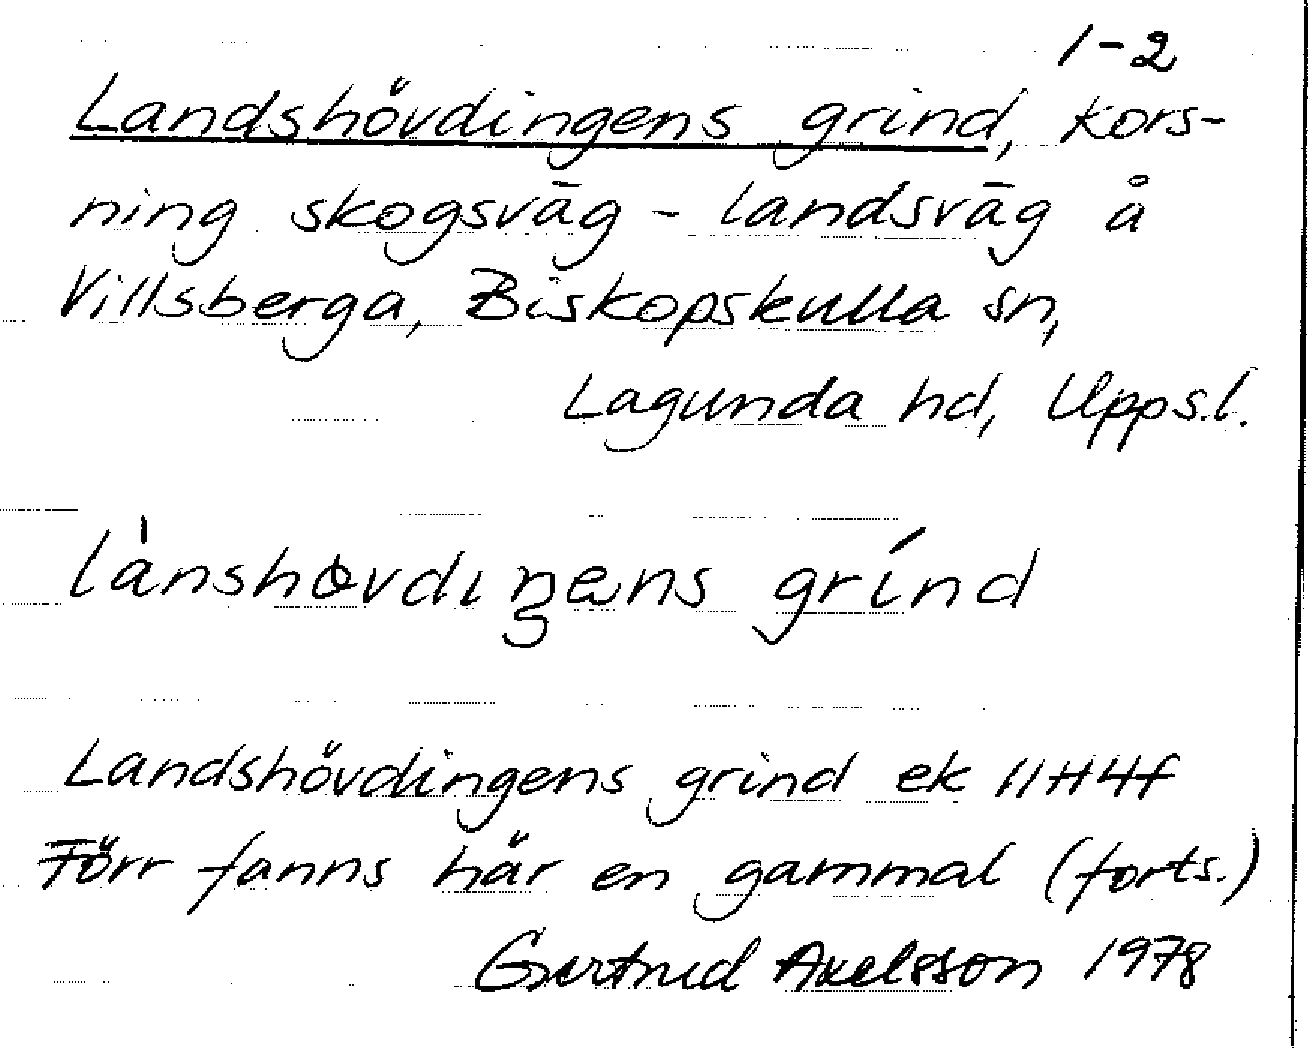 1-2
Landshövdingens grind, kors-
ning skogsväg - landsväg å
Villsberga, Biskopskulla sn,
Lagunda hd, Upps.l.
lànshɵvdıŋens grínd
Landshövdingens grind ek 11H4f
Förr fanns här en gammal (forts.)
Gertrud Axelsson 1978